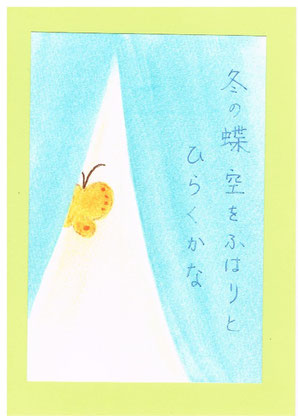 冬の蝶空をふはりと
ひらくかな